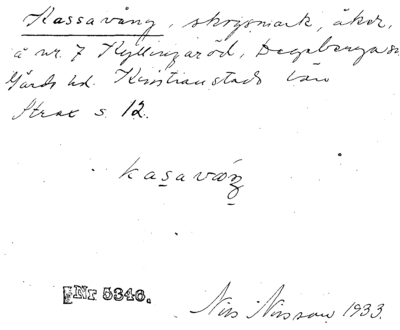 Kassavång, skogsmark, åker,
å nr. 7 Kyllingaröd, Degeberga sn
Gärds hd. Kristianstads län
Strax s. 12.
kasavåŋ
Nr 5346.
Nils Nilsson 1933.